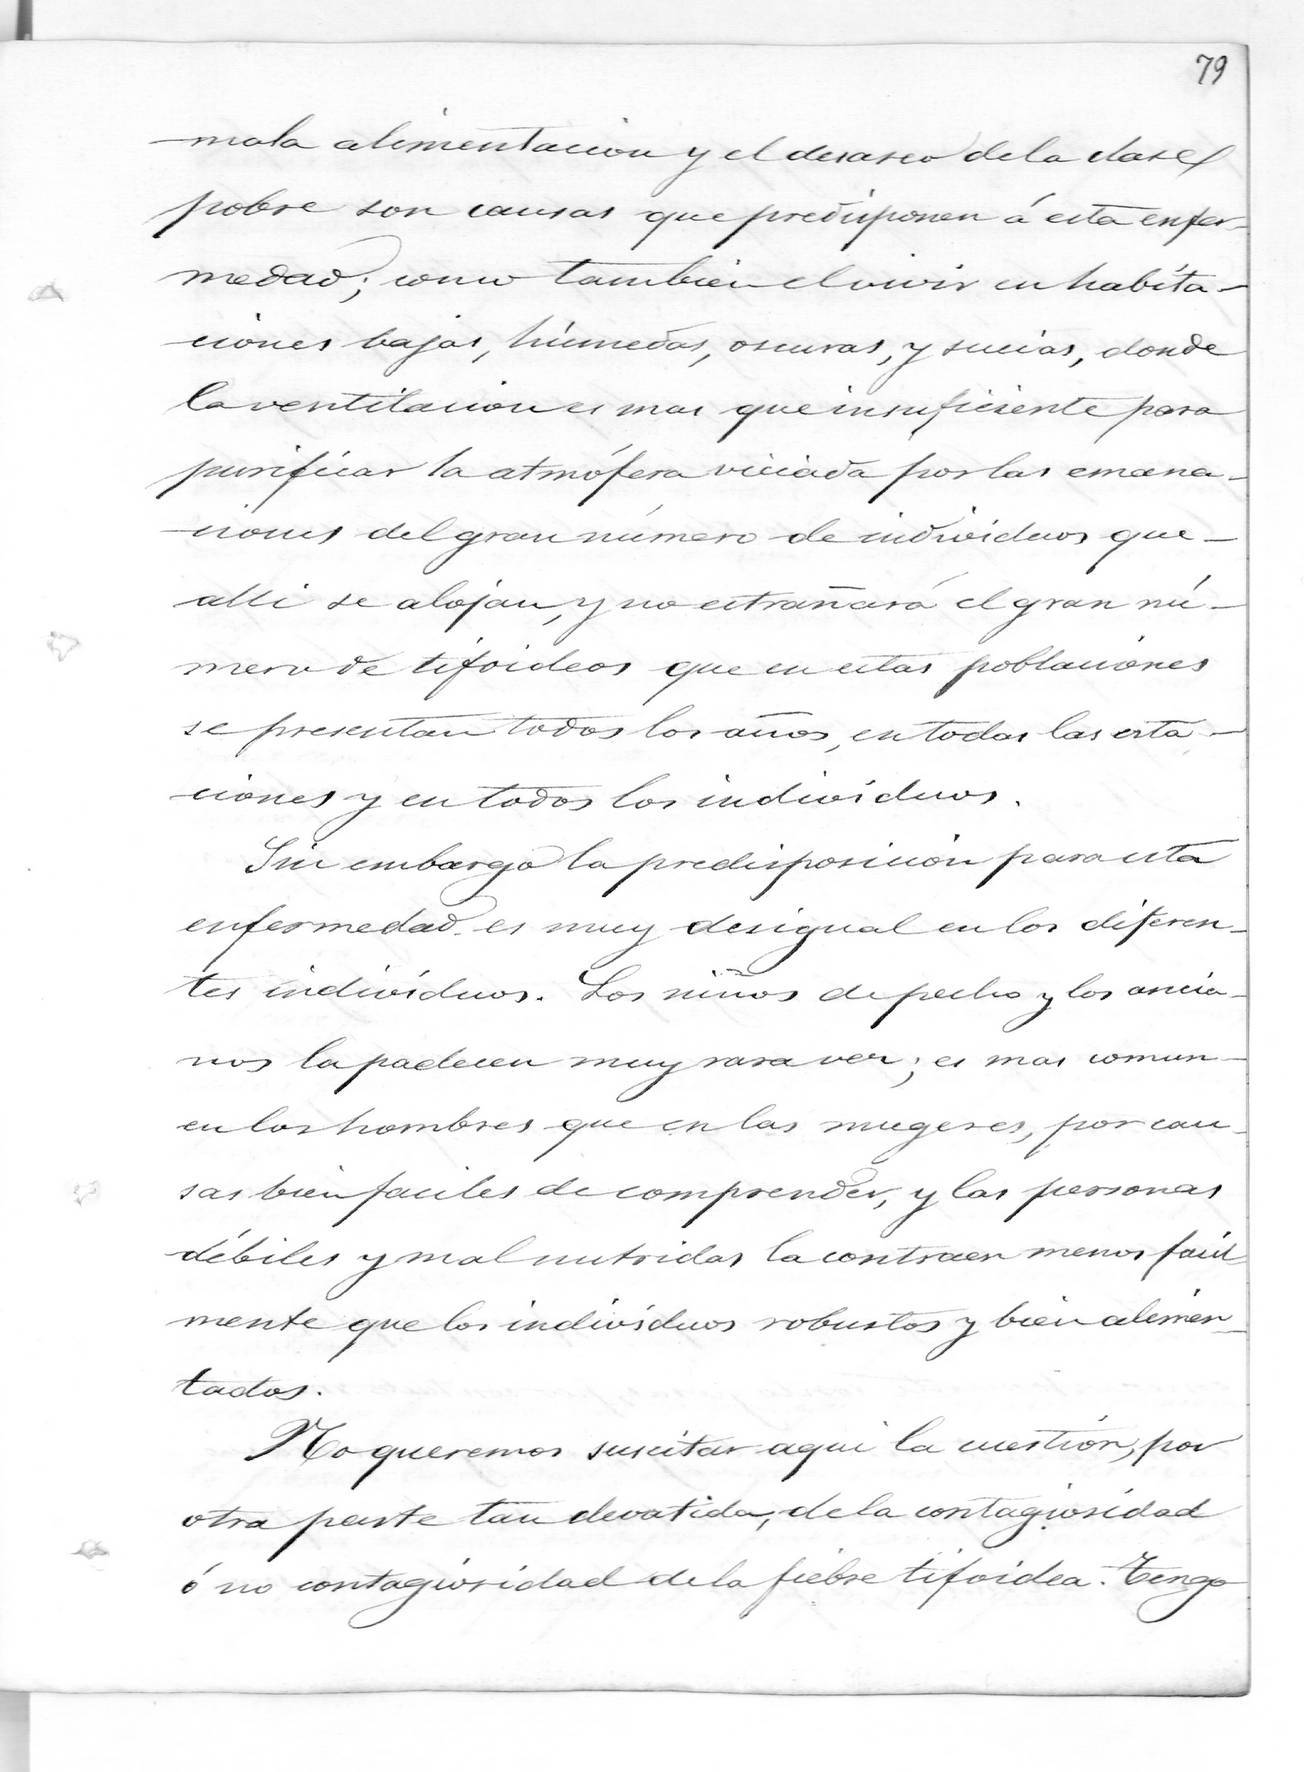 79
mala alimentacion y el desaseo de la clase
pobre son causas que predisponen á esta enfer-
medad; como tambien el vivir en habita-
ciones bajas, húmedas, oscuras, y sucias, donde
la ventilacion es mas que insuficiente para
purificar la atmófera viciada por las emana-
ciones del gran número de individuos que
alli se alojan, y no estrañará el gran nú-
mero de tifoideos que en estas poblaciones
se presentan todos los años, en todas las esta-
ciones y en todos los individuos.
Sin embargo la predisposicion para esta
enfermedad es muy desigual en los diferen-
tes individuos. Los niños de pecho y los ancia-
nos la padecen muy rara vez; es mas comun
en los hombres que en las mugeres, por cau-
sas bien faciles de comprender, y las personas
débiles y mal nutridas la contraen menos facil
mente que los individuos robustos y bien alimen-
tados.
No queremos suscitar aqui la cuestión, por
otra parte tan devatida, de la contagiosidad
ó no contagiosidad de la fiebre tifoidea. Tengo